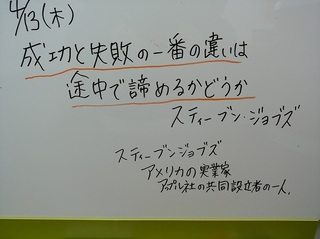 4/13(木)
成功と失敗の一番の違いは
途中で諦めるかどうか
スティーブン・ジョブズ
スティーブンジョブズ
アメリカの実業家
アップル社の共同設立者の一人。